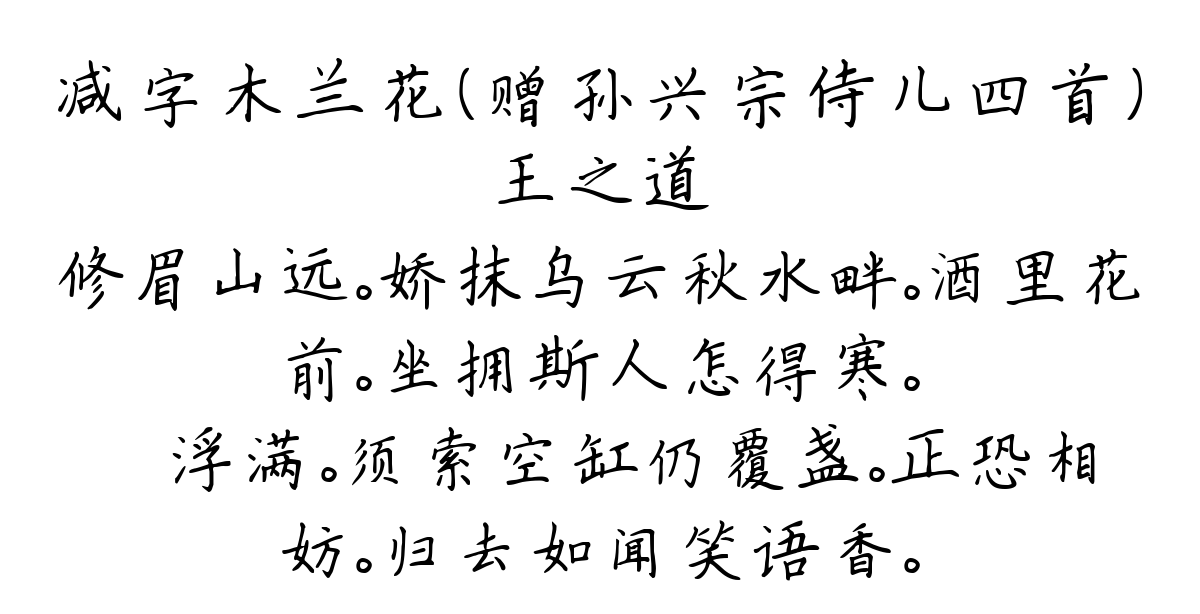 减字木兰花(赠孙兴宗侍儿四首)
王之道
修眉山远。娇抹乌云秋水畔。酒里花
前。坐拥斯人怎得寒。
浮满。须索空缸仍覆盏。正恐相
妨。归去如闻笑语香。